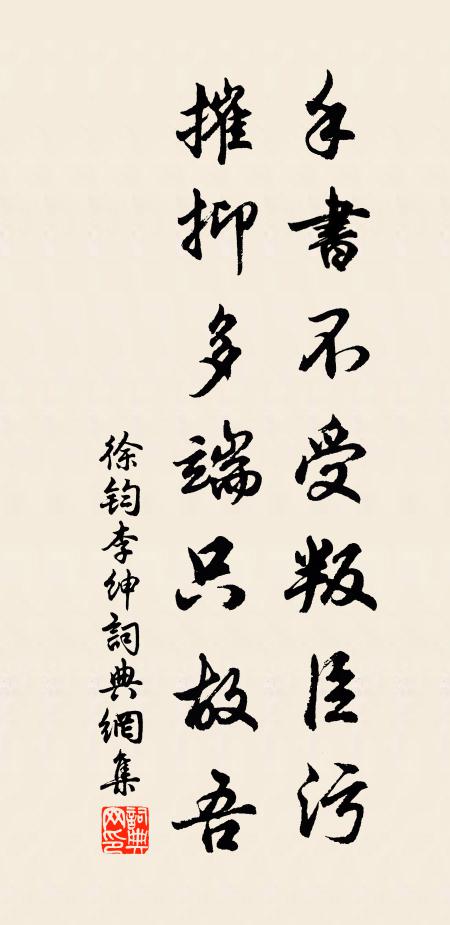 手書不受叛臣污
摧抑多端只故吾
徐鈞李紳詞典網集
詞典网印